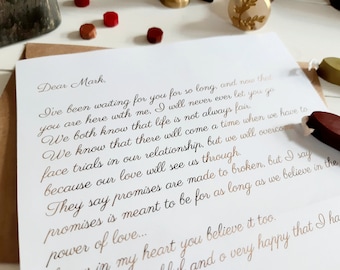 Dear Mark,
I've been waiting for you for so long, and now that
you are here with me, I will never ever let you go.
We both know that life is not always fair.
We know that there will come a time when we have to
face trials in our relationship, but we will overcome
because our love will see us through.
They say promises are made to broken, but I say
promises is meant to be for as long as we believe in the
power of love...
in my heart you believe it too.
and o very happy that I ha